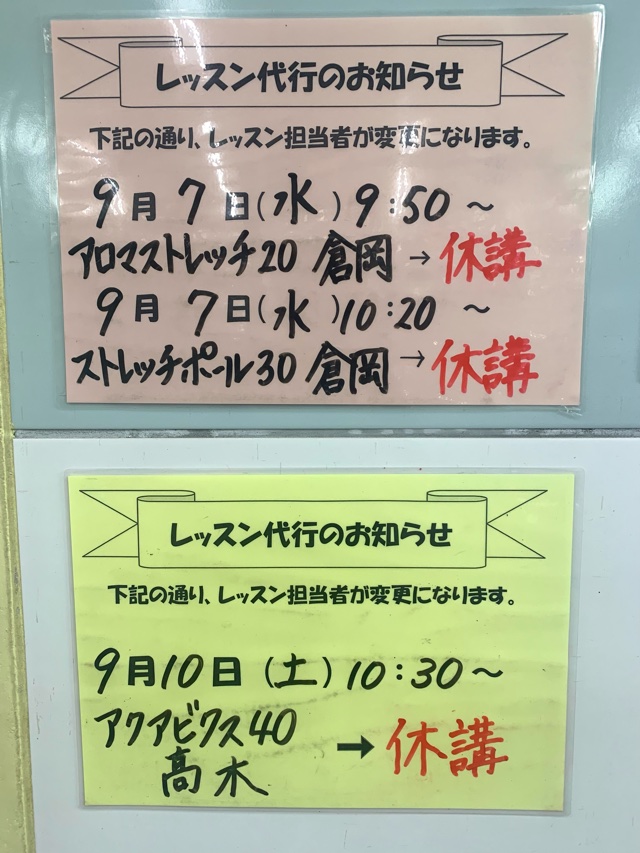 レッスン代行のお知らせ
下記の通り、レッスン担当者が変更になります。
9月7日(水)9:50～
アロマストレッチ20 倉岡→休講
9月7日(水)10:20～
ストレッチポール30 倉岡→休講
レッスン代行のお知らせ
下記の通り、レッスン担当者が変更になります。
9月10日(土)10:30～
アクアビクス40
髙木→休講